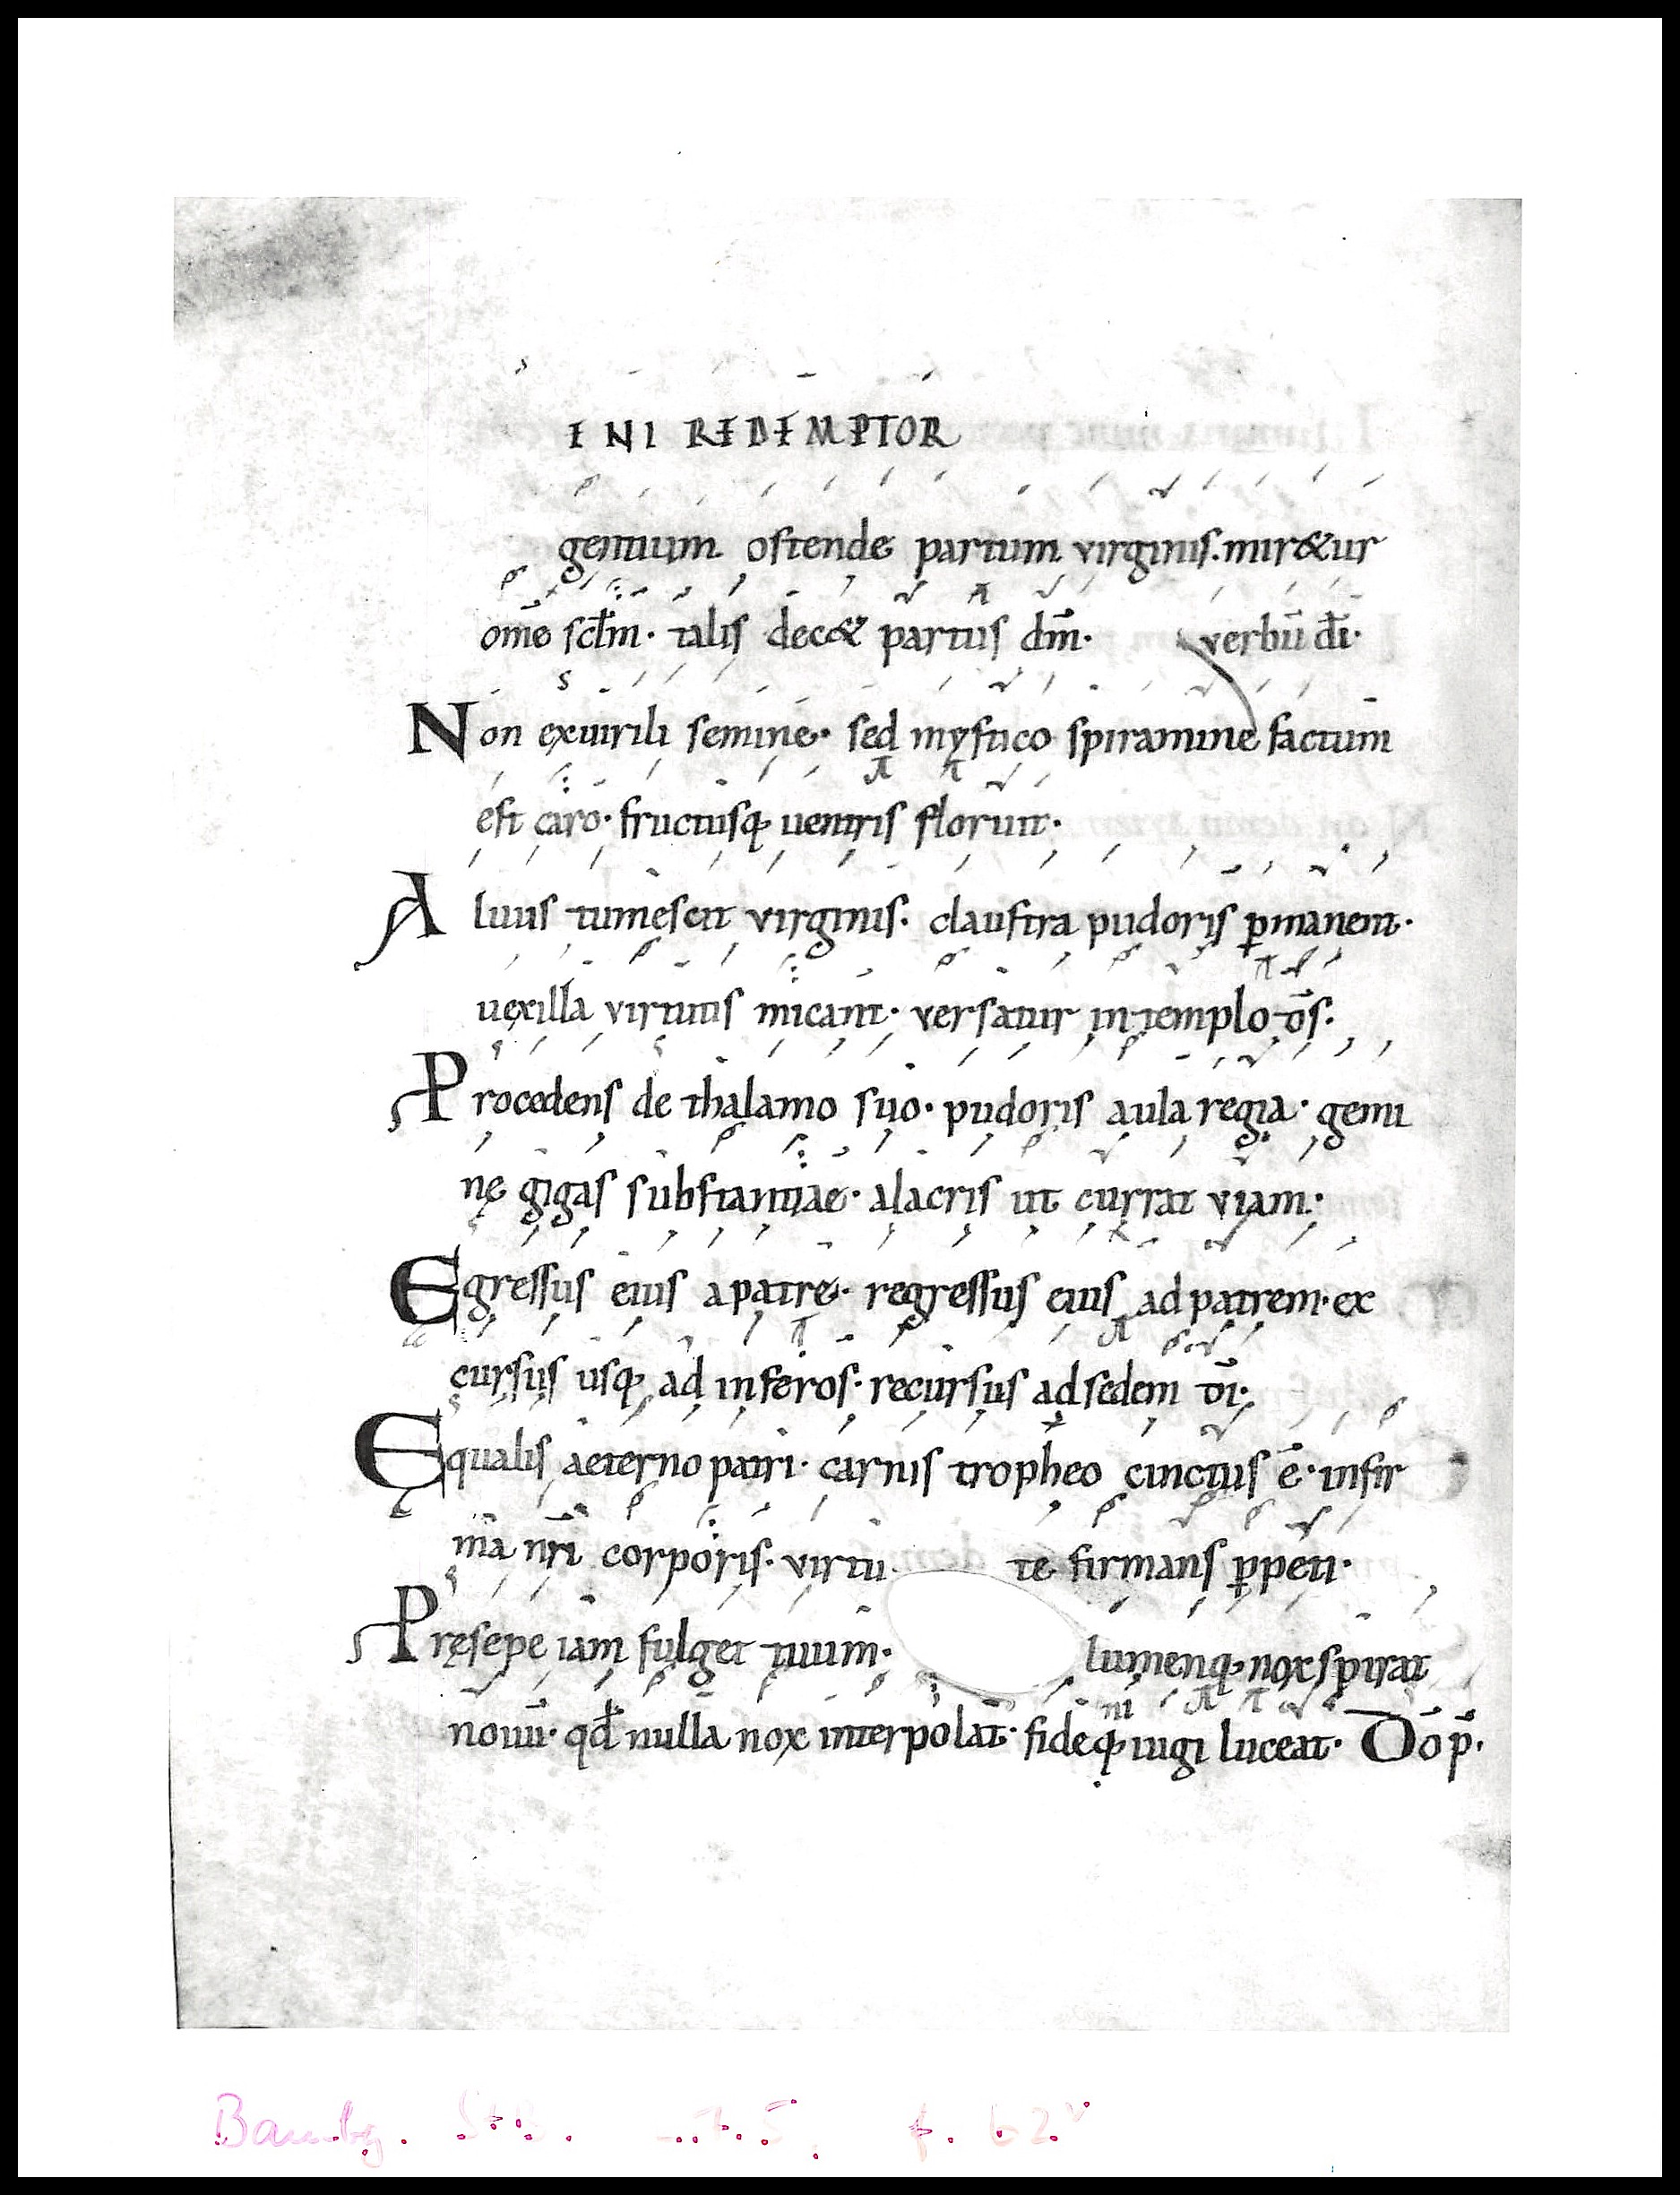 ENI REDEMPTOR
gentium ostende partum virginis. mir&ur
om̄e sc̄lm· talis dec& partus dm̄· verbū dī·
Non exuirili semine· sed mystico spiramine factum
est caro· fructusq; uentris floruit·
Aluus tumescit virginis· claustra pudoris p̱manent·
uexilla virtutis micant· versatur intemplo d̄s·
Procedens de thalamo suo· pudoris aula regia· gemi
nę gigas substantiae· alacris ut currat viam·
Egressus eius apatre· regressus eius adpatrem· ex
cursus usq; ad inferos· recursus adsedem dī·
Equalis aeterno patri· carnis tropheo cinctus ē· infir
ma nr̄i corporis· virtute firmans p̱peti·
Pręsepe iam fulget tuum· lumenq; nox spirat
nouū· qd̄ nulla nox interpolat· fideq; iugi luceat· D̄o p̄·
Bambg. StB. f. 62v